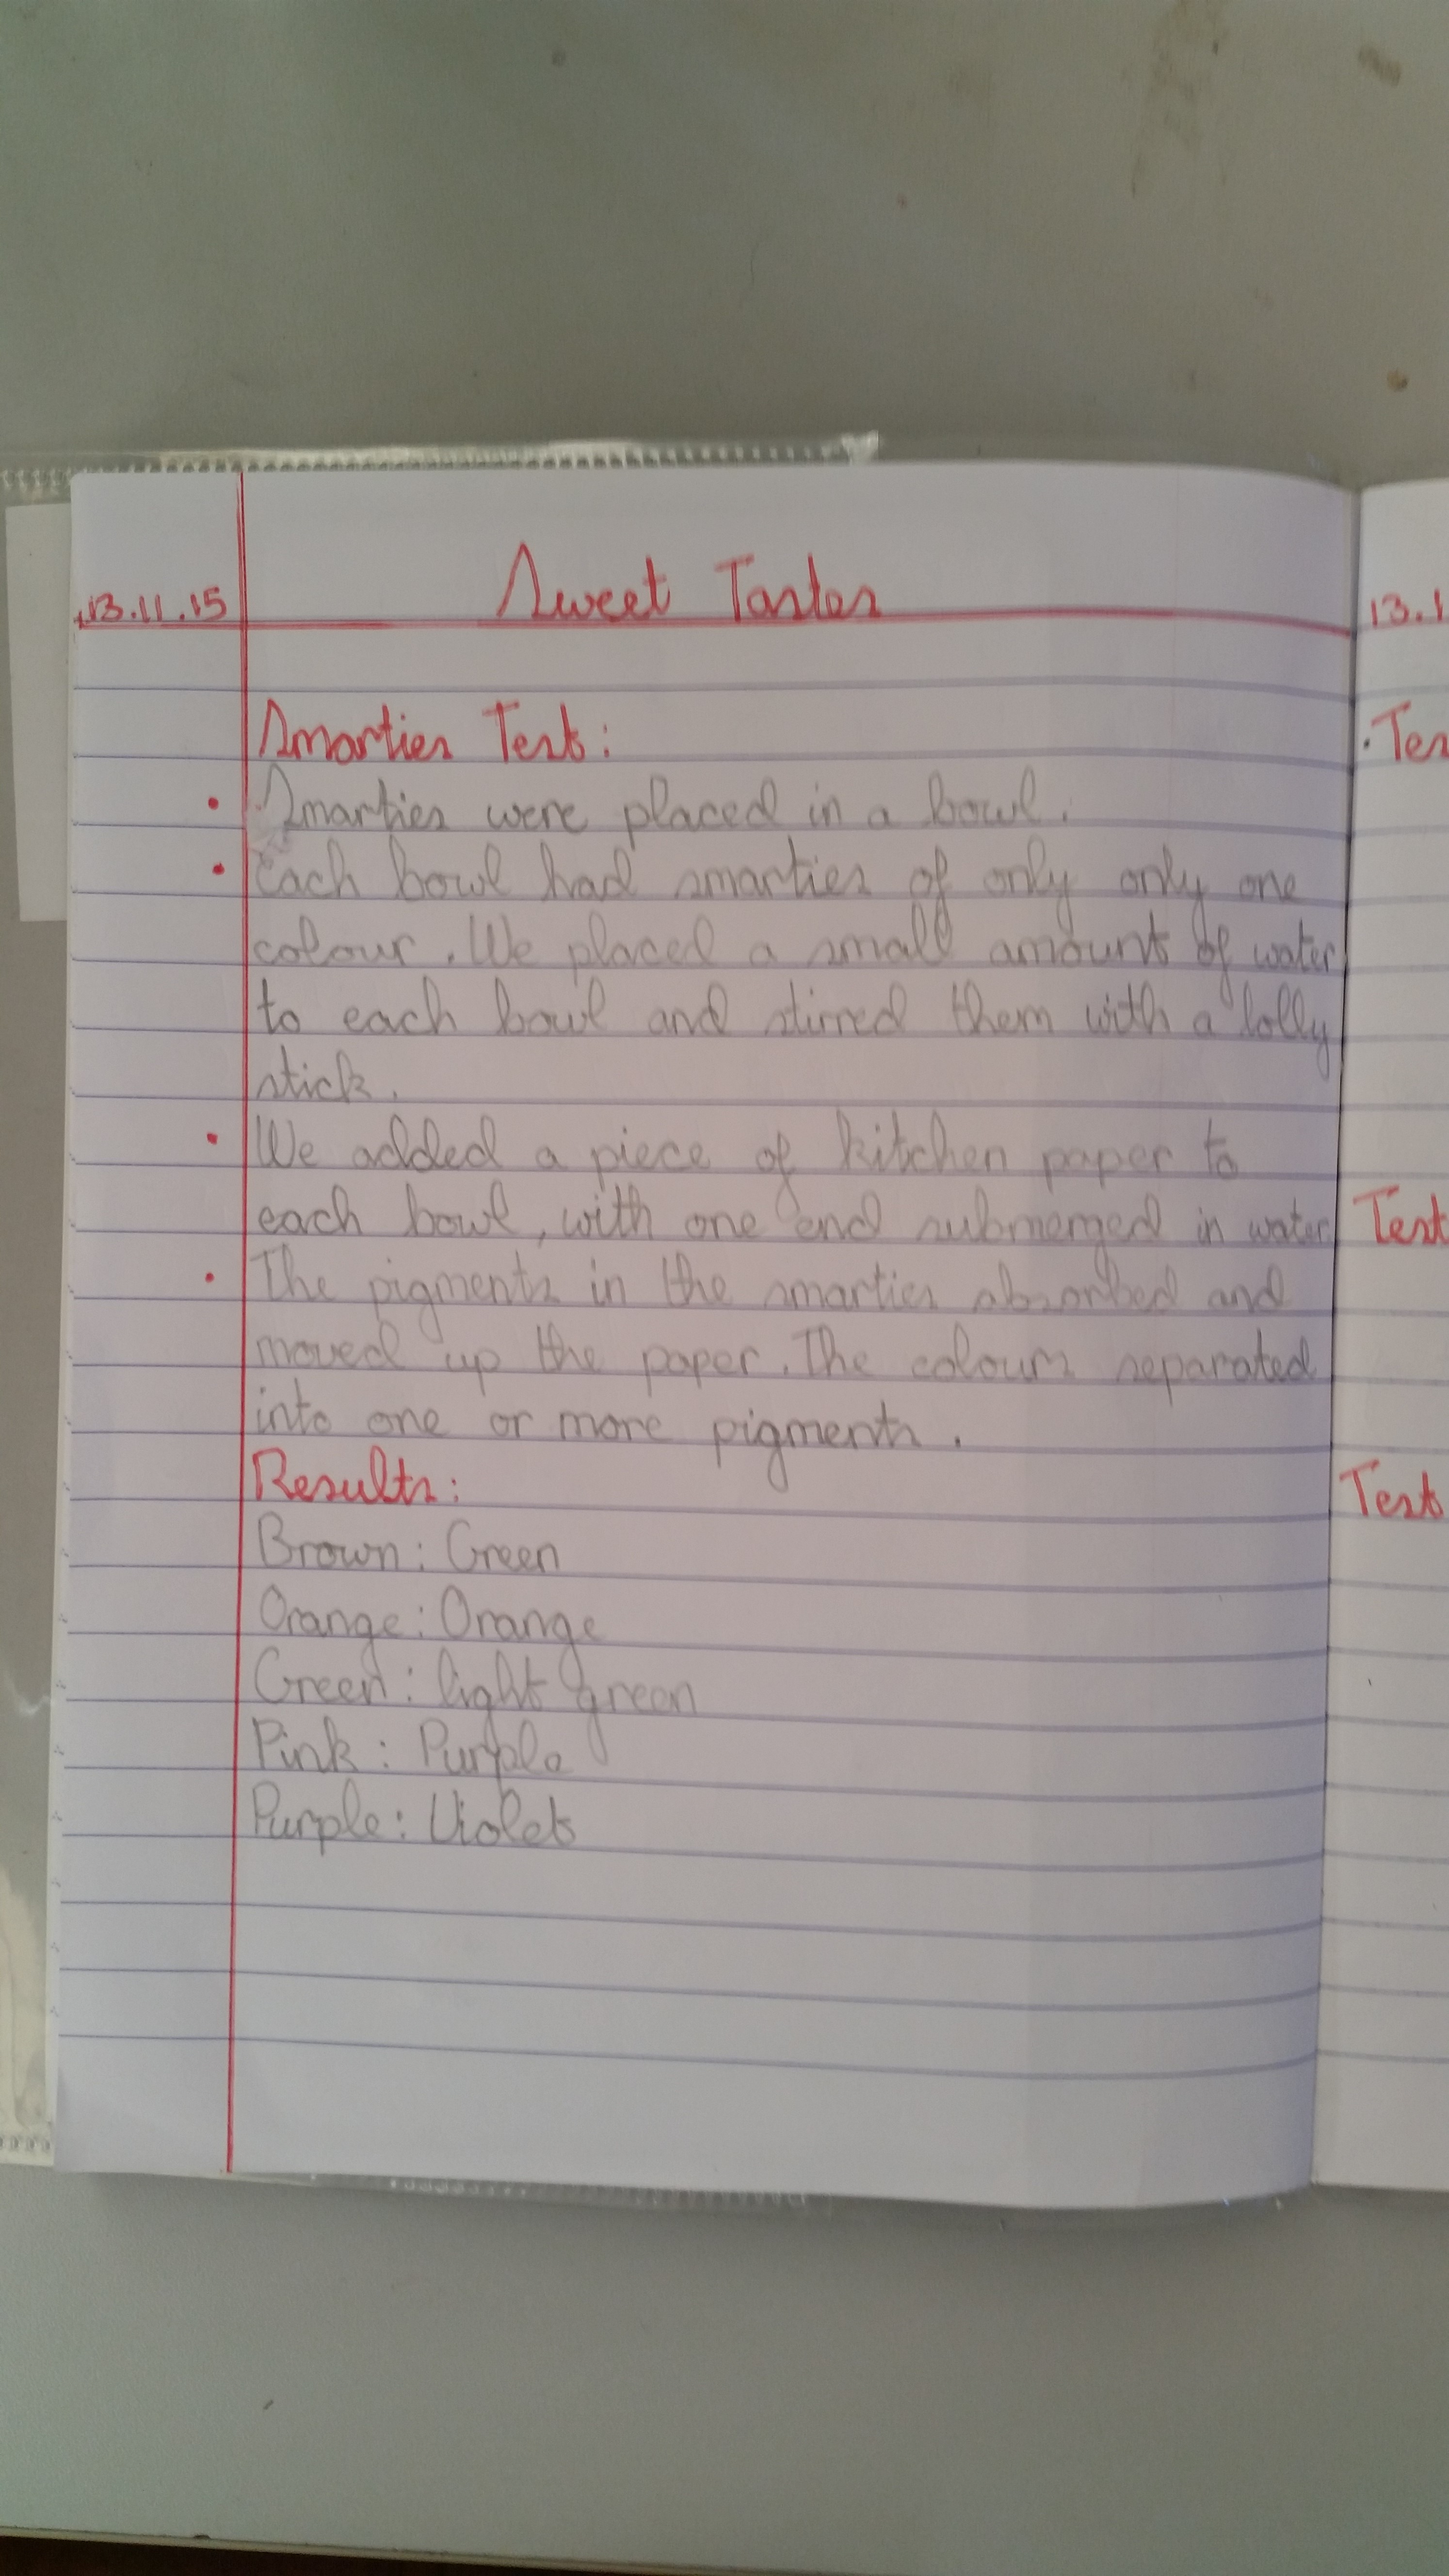 13.11.15 Sweet Tastes
Smarties Test:
• Smarties were placed in a bowl.
• Each bowl had smarties of only only one
colour. We placed a small amount of water
to each bowl and stirred them with a lolly
stick.
• We added a piece of kitchen paper to
each bowl, with one end submerged in water.
• The pigments in the smarties absorbed and
moved up the paper. The colours separated
into one or more pigments.
Results:
Brown: Green
Orange: Orange
Green: light green
Pink: Purple
Purple: Violet
13.1
Tes
Test
Test